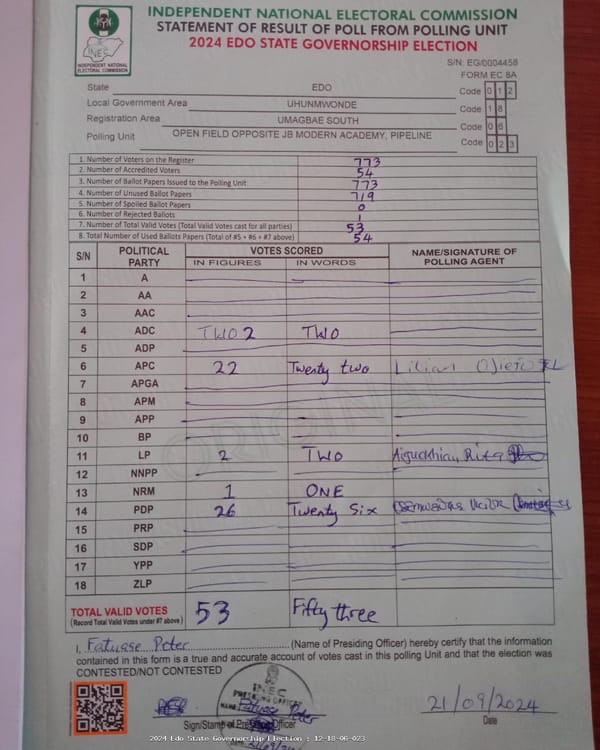 INDEPENDENT NATIONAL ELECTORAL COMMISSION
STATEMENT OF RESULT OF POLL FROM POLLING UNIT
2024 EDO STATE GOVERNORSHIP ELECTION
INEC
INDEPENDENT NATIONAL
ELECTORAL COMMISSION
S/N: EG/0004458
FORM EC 8A
State EDO Code 0 1 2
Local Government Area UHUNMWONDE Code 1 8
Registration Area UMAGBAE SOUTH Code 0 6
Polling Unit OPEN FIELD OPPOSITE JB MODERN ACADEMY, PIPELINE Code 0 2 3
1. Number of Voters on the Register 773
2. Number of Accredited Voters 54
3. Number of Ballot Papers Issued to the Polling Unit 773
4. Number of Unused Ballot Papers 719
5. Number of Spoiled Ballot Papers 0
6. Number of Rejected Ballots 1
7. Number of Total Valid Votes (Total Valid Votes cast for all parties) 53
8. Total Number of Used Ballots Papers (Total of #5 + #6 + #7 above) 54
S/N POLITICAL PARTY VOTES SCORED NAME/SIGNATURE OF POLLING AGENT
IN FIGURES IN WORDS
1 A
2 AA
3 AAC
4 ADC TWO 2 TWO
5 ADP
6 APC 22 Twenty two Lilian
7 APGA
8 APM
9 APP
10 BP
11 LP 2 TWO Rita
12 NNPP
13 NRM 1 ONE
14 PDP 26 Twenty Six Victor
15 PRP
16 SDP
17 YPP
18 ZLP
TOTAL VALID VOTES 53 Fifty three
(Record Total Valid Votes under #7 above)
I, Fatusse Peter (Name of Presiding Officer) hereby certify that the information
contained in this form is a true and accurate account of votes cast in this polling Unit and that the election was
CONTESTED/NOT CONTESTED
INEC
PRESIDING OFFICER
NAME: Fatusse Peter
21/09/2024
Sign/Stamp of Presiding Officer
Date
2024 Edo State Governorship Election : 12-18-06-023